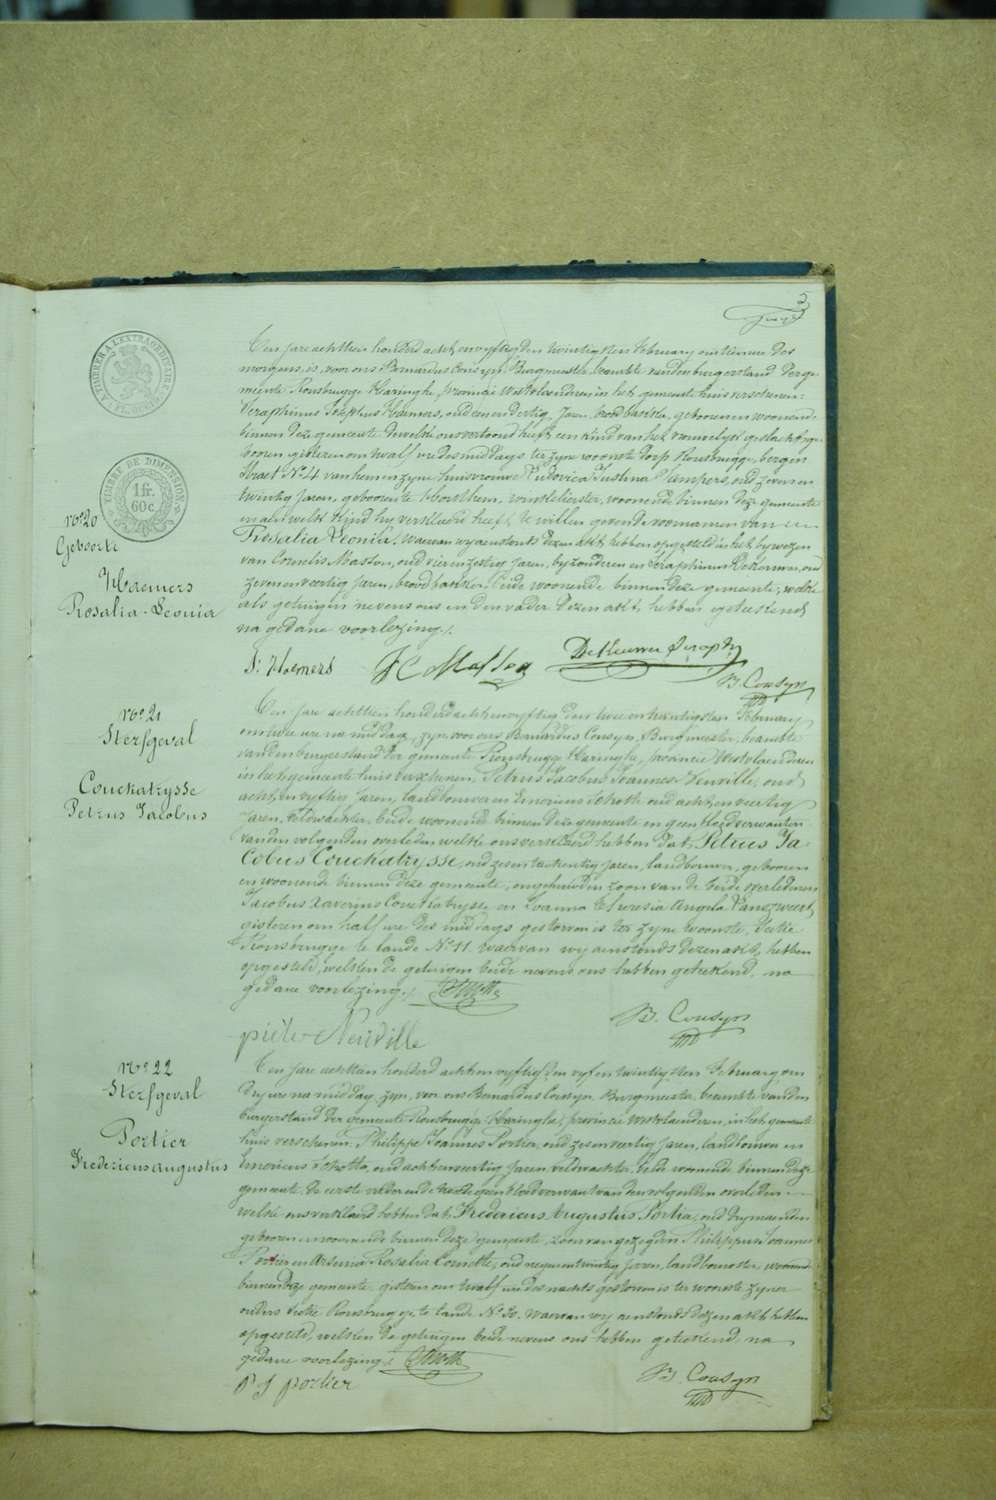 3
TIMBRER A L'EXTRAORDINAIRE
TIMBRE DE DIMENSION
1 fr.
60 c.
Een jare achttien honderd acht en vyftig den twintigsten February om tien ure des
morgens, is, voor ons Bernardus Cousyn, Burgmeester, beambte van den burgerstand der ge-
meente Rousbrugge Haringhe, provincie Westvlaenderen in het gemeente huis verschenen:
Seraphinus Josephus Haemers, oud een en dertig Jaren, broodbakker, geboren en woonende
binnen deze gemeente dewelke ons vertoond heeft een kind van het vrouwelyk geslacht, ge-
boren gisteren om half ure des middags te zyne woonste dorp Rousbrugge, bergen
straet No 4 van hem en zyne huisvrouwe Ludovica Justina Jampers, oud zeven en
twintig Jaren, geboren te winkelierster, woonende binnen deze gemeente
en aen welk kind hy verklaerd heeft te willen geven de voornamen van
Rosalia Leonia. Waervan wy aenstonds dezen akt hebben opgesteld in het bywezen
van Cornelis Masson, oud vier en zestig Jaren, byzonderen en Seraphinus Dekeirwer, oud
zeven en veertig Jaren, broodbakker, beide woonende binnen deze gemeente, welke
als getuigen nevens ons en den vader dezen akt hebben geteekend
na gedane voorlezing.
No 20
Geboorte
Haemers
Rosalia Leonia
S: Haemers
B. Cousyn
No 21
Sterfgeval
Couckatrysse
Petrus Jacobus
Een jare achttien honderd acht en vyftig den twee en twintigsten February
om twee ure na middag, zyn voor ons Bernardus Cousyn, Burgmeester, beambte
van den burgerstand der gemeente Rousbrugge Haringhe, provincie Westvlaenderen
in het gemeente huis verschenen, Petrus Jacobus Joannes Neuville, oud
acht en vyftig Jaren, landbouwer en Emericus Schotte oud acht en veertig
Jaren, veldwachter, beide woonende binnen deze gemeente en geen bloedverwanten
van den volgenden overleden welke ons verklaerd hebben dat, Petrus Ja-
cobus Couckatrysse, oud zes en tachentig jaren, landbouwer, geboren
en woonende binnen deze gemeente, ongehuwden zoon van de beide overledenen
Jacobus Xaverius Couckatrysse en Joanna Theresia Angela Vanszwert,
gisteren om half ure des middags gestorven is ter zyne woonste, Sectie
Rousbrugge te lande No 11 waervan wy aenstonds dezen akt hebben
opgesteld, welken de getuigen beide nevens ons hebben geteekend, na
gedane voorlezing.
pieter Neuville
B. Cousyn
No 22
Sterfgeval
Portier
Fredericus augustus
Een jare achttien honderd acht en vyftig den vyf en twintigsten February, om
dry ure na middag, zyn, voor ons Bernardus Cousyn, Burgmeester, beambte van den
burgerstand der gemeente Rousbrugge Haringhe, provincie Westvlaenderen, in het gemeente
huis verschenen. Philippe Joannes Portier, oud zes en veertig Jaren, landbouwer en
Emericus Schotte, oud acht en veertig Jaren, veldwachter, beide woonende binnen deze
gemeente, de eerste vader en de tweede geen bloedverwant van den volgenden overleden
welke ons verklaerd hebben dat, Fredericus Augustus Portier, oud dry maenden
geboren en woonende binnen deze gemeente, zoon van gezegden Philippus Joannes
Portier en Rosalia oud negen en twintig Jaren, landbouwster, woonende
binnen deze gemeente, gisteren om twalf ure des nachts gestorven is ter woonste zyner
ouders Sectie Rousbrugge te lande No waervan wy aenstonds dezen akt hebben
opgesteld, welken de getuigen beide nevens ons hebben geteekend, na
gedane voorlezing.
P J portier
B. Cousyn